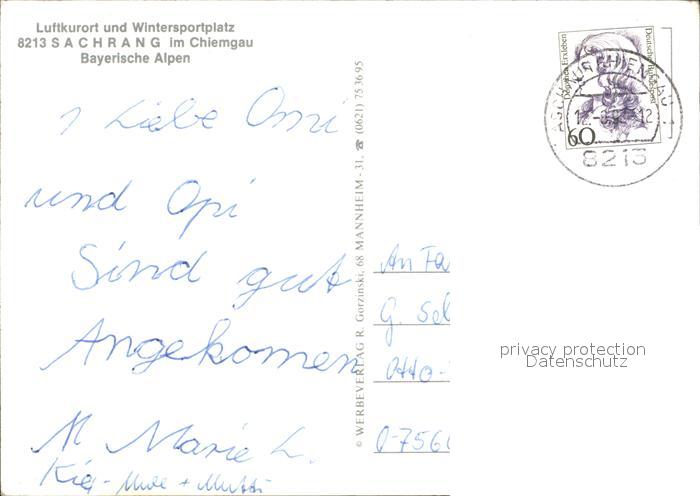 Luftkurort und Wintersportplatz
8213 SACHRANG im Chiemgau
Bayerische Alpen
Liebe Omi
und Opi
Sind gut
Angekomen
Marie L.
+ Mutti
© WERBEVERLAG R. Gorzinski, 68 MANNHEIM - 31, ☎ (0621) 75 36 95
Dorothea Erxleben
Deutsche Bundespost
60
8213
An Fa
G. Sel
Otto-
0-7560
privacy protection
Datenschutz